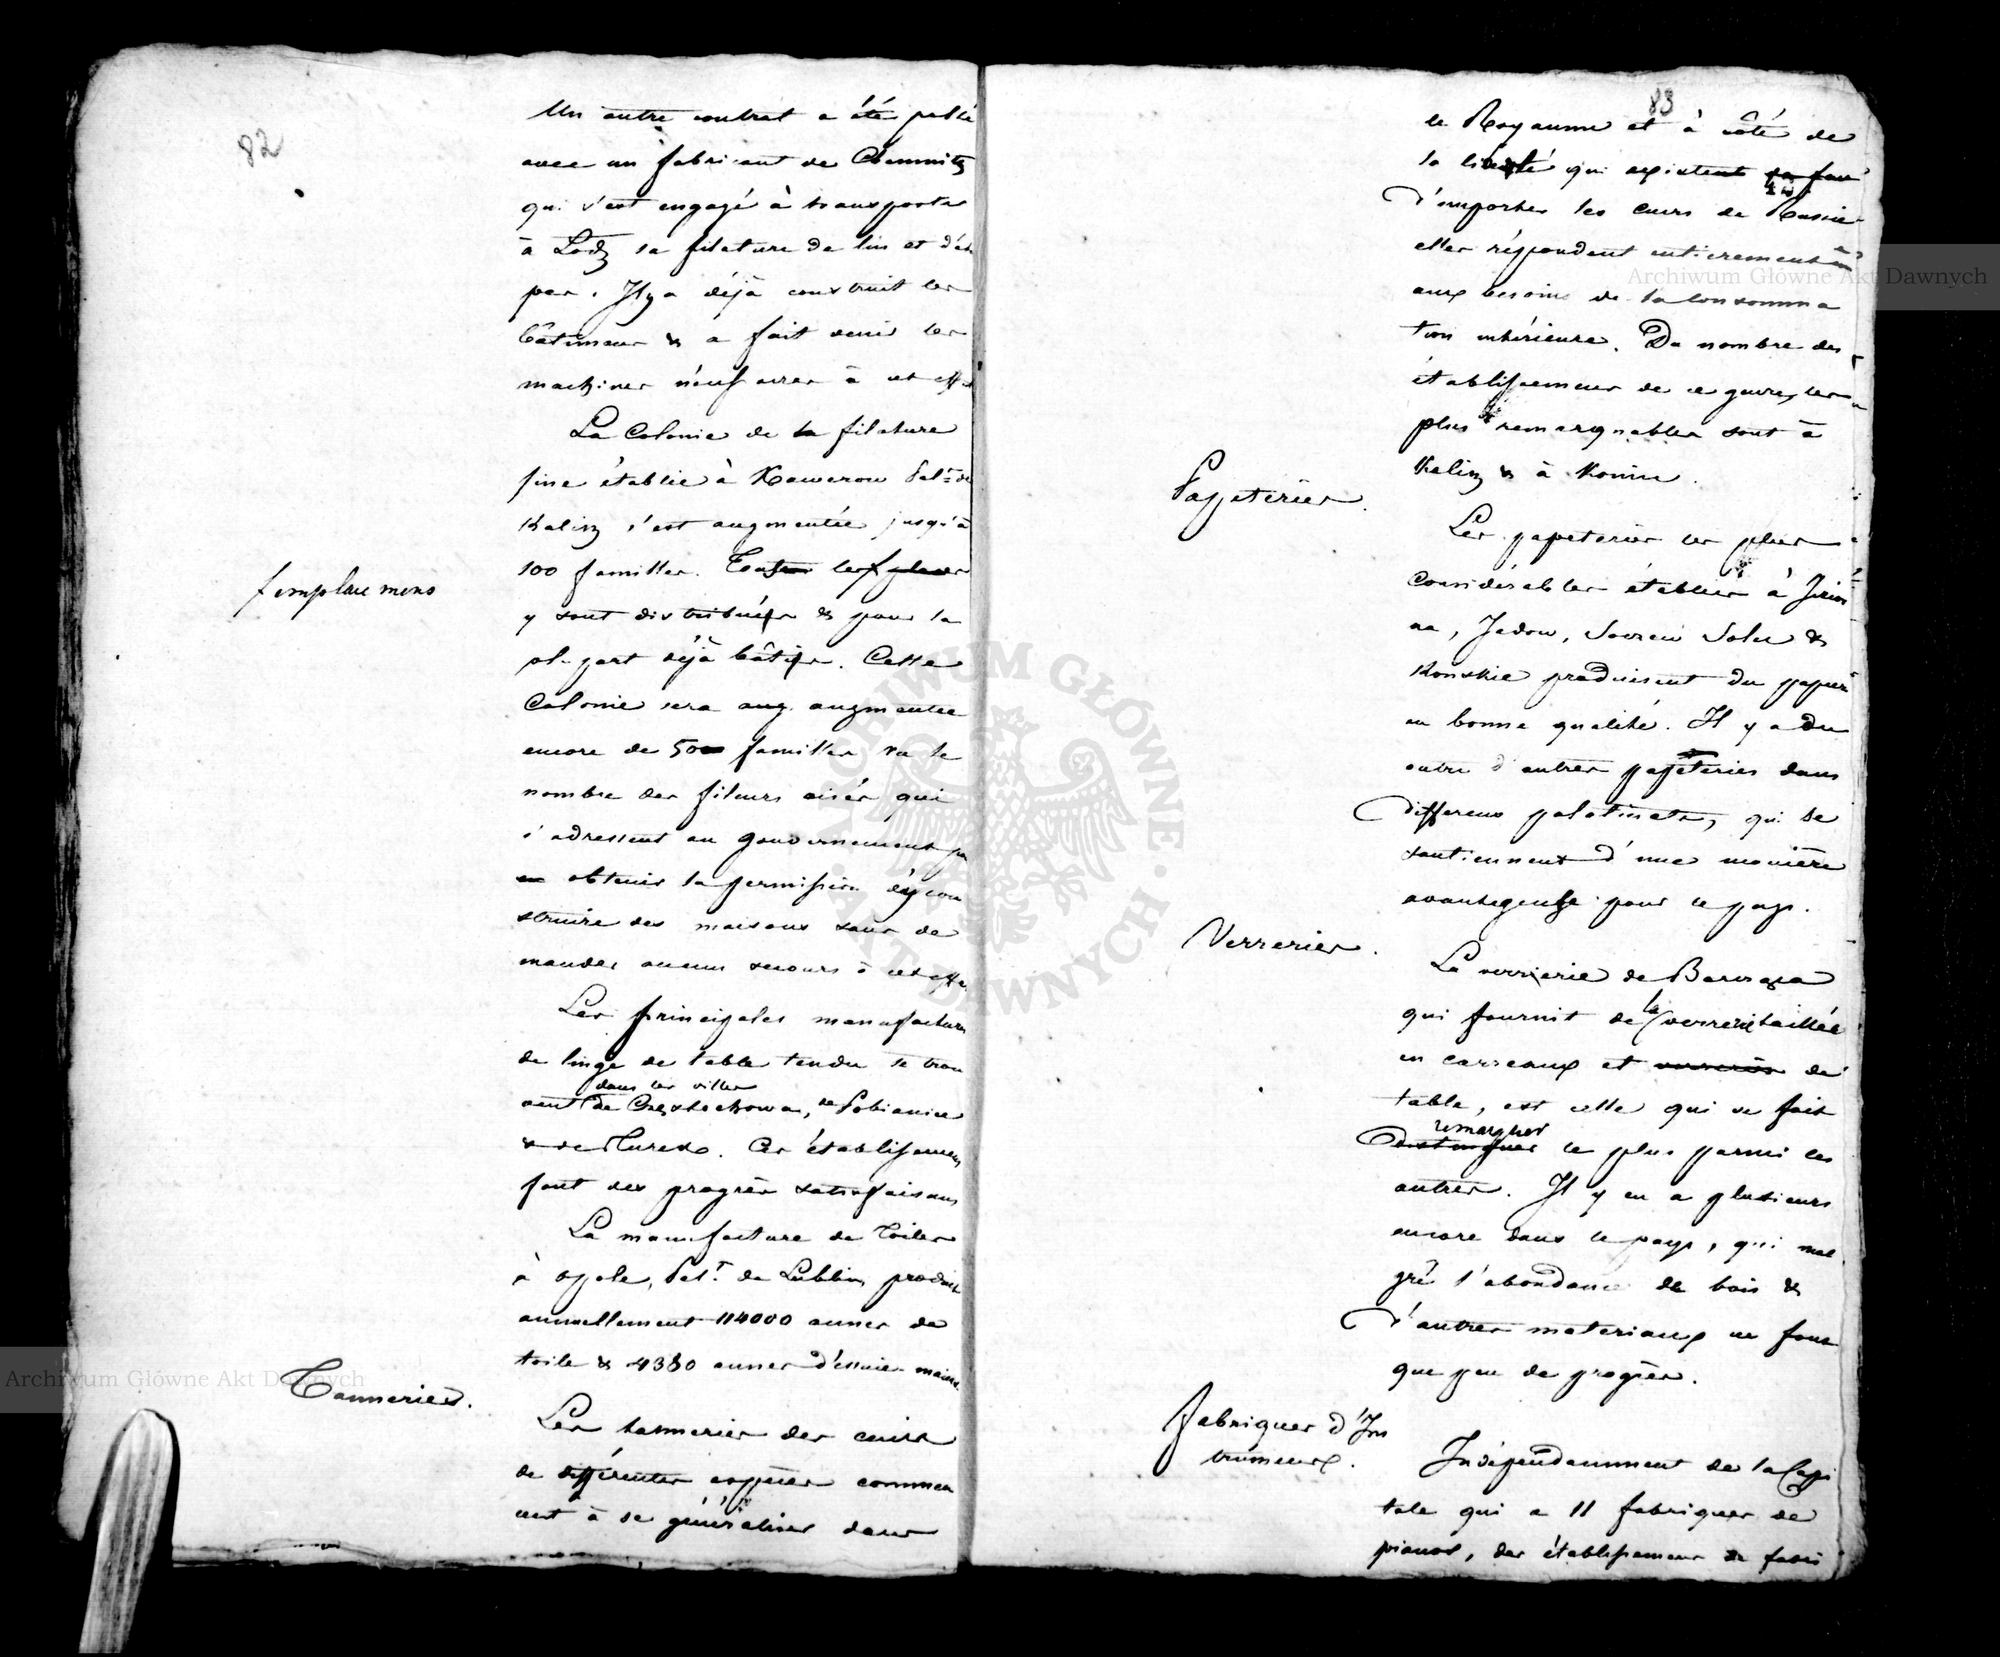 82
Un autre contrat a été passé
avec un fabricant de Chemnitz
qui s'est engagé à transporter
à Lodz sa filature de lin et d'étou
pes. Il y a déjà construit les
bâtimens & a fait venir les
machines nécessaires à cet effet
La Colonie de la filature
fine établie à Xawerow Pal.t de
Kalisz s'est augmentée jusqu'à
100 familles. Tous les places
f emplacemens
y sont distribués & pour la
plupart déjà bâtis. Cette
Colonie sera aug augmentée
encore de 500 familles vu le
nombre des fileurs aisés qui
s'adressent au gouvernement pr
en obtenir la permission d'y con
struire des maisons sans de
mander aucun secours à cet effet
Les principales manufactures
de linge de table tendu se trou
dans les villes
vent de Częstochowa, de Pabianice
& de Turek. Ces établissemens
font des progrès satisfaisans
La manufacture de Toiles
à Opole, Pal.t de Lublin, produit
annuellement 114000 aunes de
toile & 4380 aunes d'essuie-mains.
Tanneries.
Les tanneries des cuirs
de différentes espèces commen
cent à se généraliser dans
83
le Royaume et à côté de
la liberté qui existent
d'importer les cuirs de Russie
elles répondent entierement
aux besoins de la consomma
tion intérieure. Du nombre des
établissemens de ce genre, les
plus remarquables sont à
Kalisz & à Konin.
Papeteries.
Les papeteries les plus
considérables établies à Jezior
na, Jedow, Soczewka &
Konskie produisent du papier
en bonne qualité. Il y a du
outre d'autres papeteries dans
differens palatinats, qui se
soutiennent d'une manière
avantageuse pour le pays.
Verreries.
La verrerie de Barczącza
la
qui fournit de verrerie taillée
en carreaux et verreries de
table, est celle qui se fait
remarquer
distinguer le plus parmi les
autres. Il y en a plusieurs
encore dans le pays, qui mal
gré l'abondance de bois &
d'autres materiaux ne font
que peu de progrès.
Fabriques d'Ins
trumens.
Indépendamment de la Capi
tale qui a 11 fabriques de
pianos, des établissemens de fabri
Archiwum Główne Akt Dawnych
Archiwum Główne Akt Dawnych
ARCHIWUM GŁÓWNE · AKT DAWNYCH ·